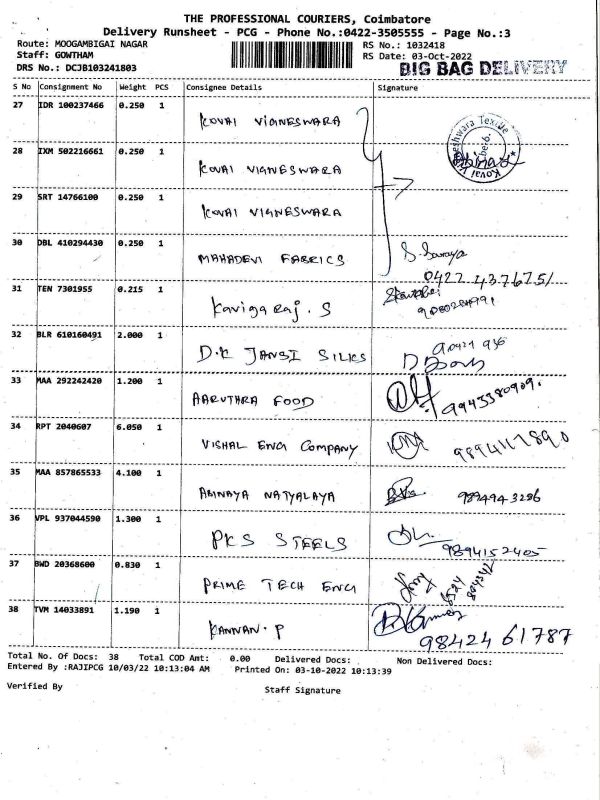 THE PROFESSIONAL COURIERS, Coimbatore
Delivery Runsheet - PCG - Phone No.:0422-3505555 - Page No.:3
Route: MOOGAMBIGAI NAGAR
RS No.: 1032418
Staff: GOWTHAM
RS Date: 03-Oct-2022
DRS No.: DCJB103241803
BIG BAG DELIVERY
S No Consignment No Weight PCS Consignee Details Signature
27 IDR 100237466 0.250 1 KOVAI VIGNESWARA
28 IXM 502216661 0.250 1 KOVAI VIGNESWARA
29 SRT 14766100 0.250 1 KOVAI VIGNESWARA
30 DBL 410294430 0.250 1 MAHADEVI FABRICS S. Saranya
0422 4376751
31 TEN 7301955 0.215 1 Kavigaraj. S
32 BLR 610160491 2.000 1 D.K JANSI SILKS
33 MAA 292242420 1.200 1 AARUTHRA FOOD 9943380909.
34 RPT 2040607 6.050 1 VISHAL ENG COMPANY
35 MAA 857865533 4.100 1 ABINAYA NATYALAYA 9894943286
36 VPL 937044590 1.300 1 PKS STEELS 9894152405
37 BWD 20368600 0.830 1 PRIME TECH ENG
38 TVM 14033891 1.190 1 KANNAN. P 98424 61787
Total No. Of Docs: 38 Total COD Amt: 0.00 Delivered Docs: Non Delivered Docs:
Entered By :RAJIPCG 10/03/22 10:13:04 AM Printed On: 03-10-2022 10:13:39
Verified By Staff Signature